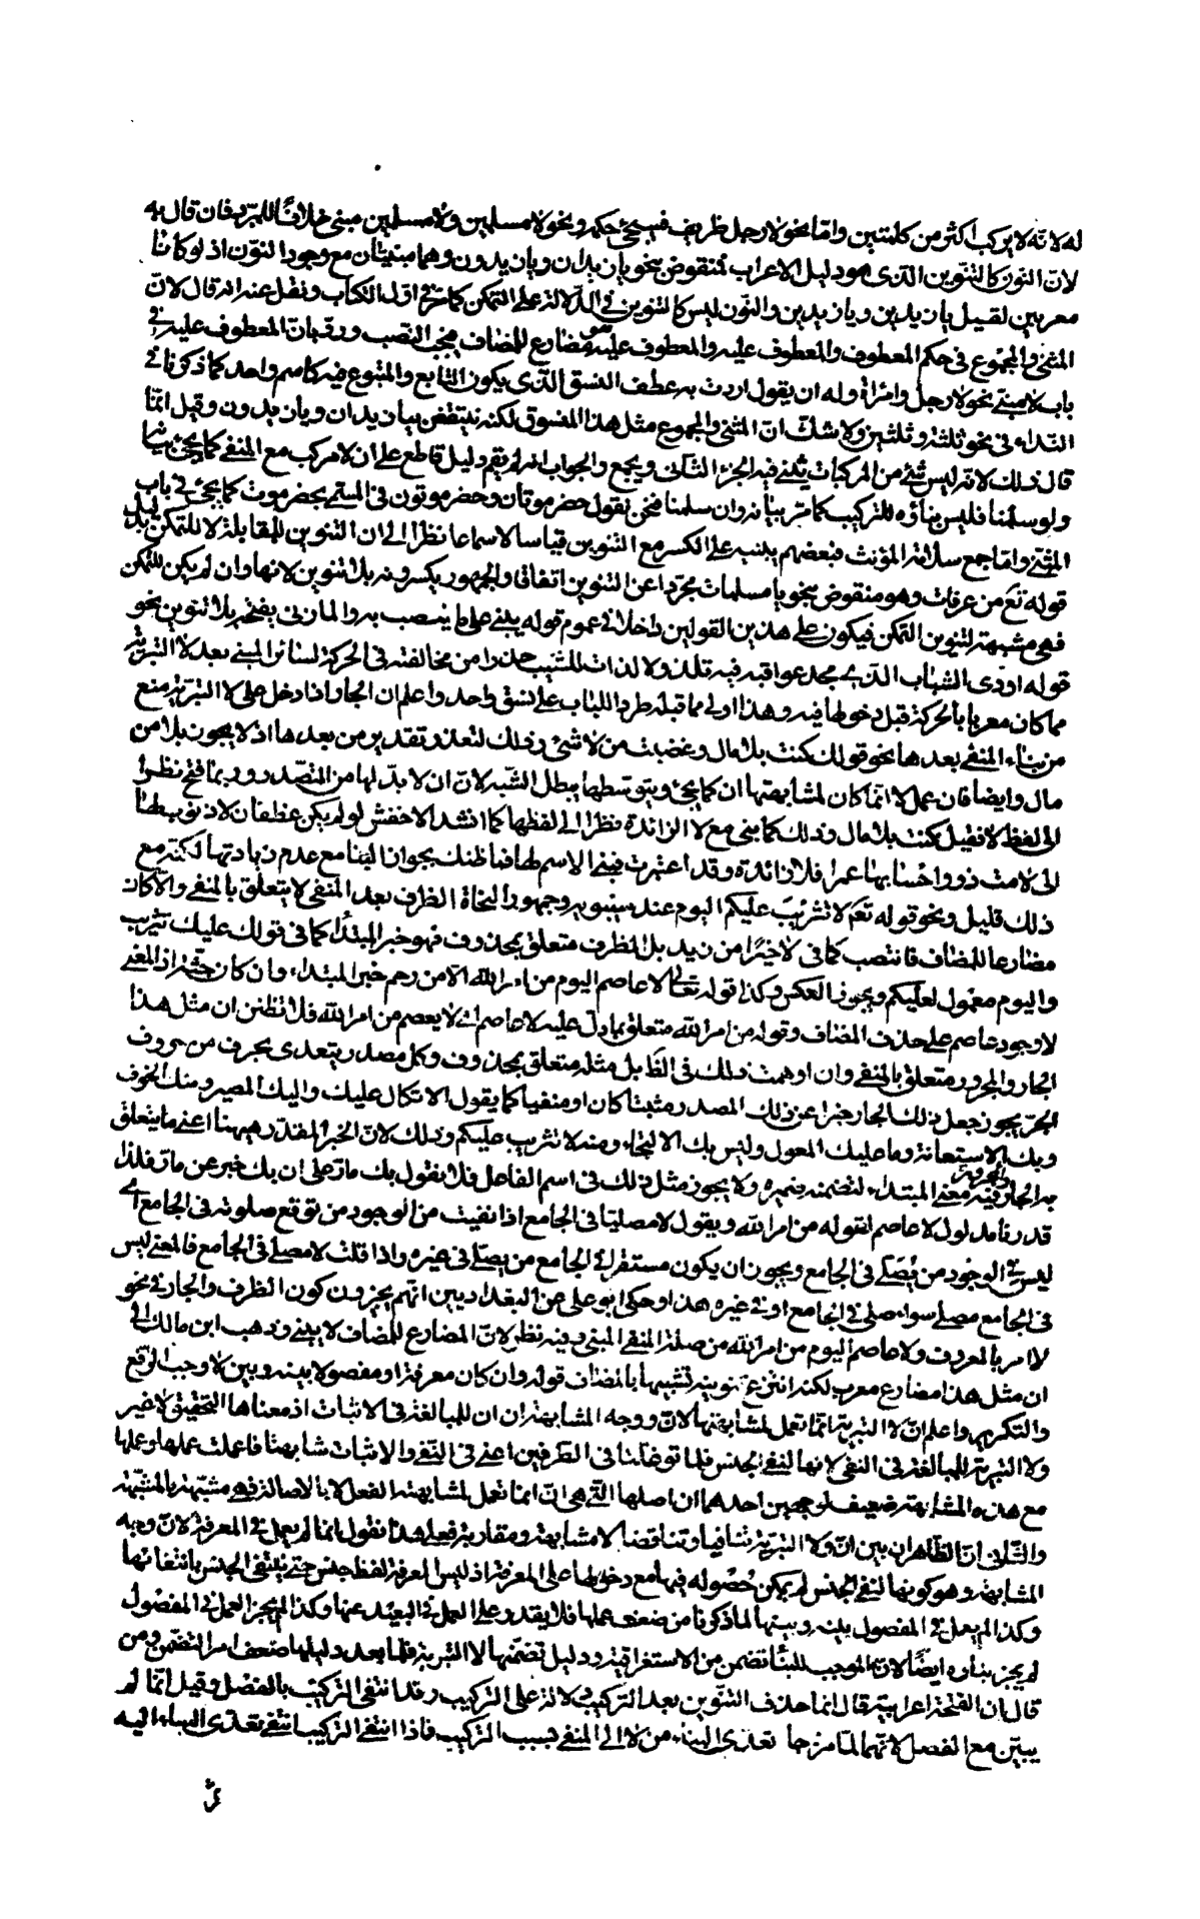 له لانه لا يركب اكثر من كلمتين واما نحو لا رجل ظريف فيجئ حكمه ونحو لا مسلمين ولا مسلمين مبني خلافا للمبرد فان قال به
لان النون كالتنوين الذى هو دليل الاعراب منقوض بنحو يا زيدان ويا زيدون وهما مبنيان مع وجود النون اذ لو كانا
معربين لقيل يا زيدين ويا زيدين والنون ليس كالتنوين فى الدلالة على التمكن كما مر فى اول الكتاب ونقل عنه انه قال لان
المثنى والمجموع فى حكم المعطوف والمعطوف عليه والمعطوف عليه مضارع للمضاف يجب النصب ورد بان المعطوف عليه فى
باب لا مبنى نحو لا رجل وامرأة وله ان يقول اردت به عطف النسق الذى يكون التابع والمتبوع فيه كاسم واحد كما ذكرنا فى
النداء فى نحو ثلثة وثلثين ولا شك ان المثنى والمجموع مثل هذا المنسوق لكنه ينتقض بيا زيدان ويا زيدون وقيل انما
قال ذلك لانه ليس شئ من المركبات يثنى فيه الجزء الثانى ويجمع والجواب انه لم يقم دليل قاطع على ان لا مركب مع المنفى كما يجئ بيانه
ولو سلمنا فليس بناؤه للتركيب كما مر بيانه وان سلمنا فنحن نقول حضرموتان وحضرموتون فى المسمى بحضرموت كما يجئ فى باب
المثنى واما جمع سلامة المؤنث فبعضهم يبنيه على الكسر مع التنوين قياسا لا سماعا نظرا الى ان التنوين للمقابلة لا للتمكن بدليل
قوله تع من عرفات وهو منقوض بنحو يا مسلمات مجردا عن التنوين اتفاقا والجمهور يكسرونه بلا تنوين لانها وان لم يكن للتمكن
فهى مشبهة لتنوين التمكن فيكون على هذين القولين داخلا فى عموم قوله يبنى على ما ينصب به والمازنى يفتحه بلا تنوين نحو
قوله اودى الشباب الذى مجد عواقبه فيه تلذ ولا لذات للشيب حذرا من مخالفته فى الحركة لسائر المبنى بعد لا التبرئة
مما كان معربا بالحركة قبل دخولها فيه وهذا اولى مما قبله طردا للباب على نسق واحد واعلم ان الجار اذا دخل على لا التبرئة منع
من بناء المنفى بعدها نحو قولك كنت بلا مال وغضبت من لا شئ وذلك لتعذر تقدير من بعدها اذ لا يجوز بلا من
مال وايضا فان عمل لا انما كان لمشابهتها ان كما يجئ وبتوسطها يبطل الشبه لان ان لا بد لها من التصدر وربما فتح نظرا
الى لفظ لا فقيل كنت بلا مال وذلك كما بنى مع لا الزائدة نظرا الى لفظها كما انشد الاخفش لو لم يكن غطفان لا ذنوب لها
الى لامت ذووا احسابها عمرا فلا زائدة وقد اعتبرت فبنى الاسم لها فما ظنك بجواز البنا مع عدم زيادتها لكنه مع
ذلك قليل ونحو قوله تع لا تثريب عليكم اليوم عند سيبويه وجمهور النحاة الظرف بعد المنفى لا يتعلق بالمنفى والا لكان
مضارعا للمضاف فانتصب كما فى لا خيرا من زيد بل الظرف متعلق بمحذوف فهو خبر المبتدأ كما فى قولك عليك تثريب
واليوم معمول لعليكم ويجوز العكس وكذا قوله تعالى لا عاصم اليوم من امر الله الا من رحم خبر المبتداء وان كان جثة اذ المعنى
لا وجود عاصم على حذف المضاف وقوله من امر الله متعلق بما دل عليه لا عاصم اى لا يعصم من امر الله فلا تظنن ان مثل هذا
الجار والمجرور متعلق بالمنفى وان اوهمت ذلك فى الظاهر بل مثله متعلق بمحذوف وكل مصدر يتعدى بحرف من حروف
الجر يجوز جعل ذلك الجار خبرا عن ذلك المصدر مثبتا كان او منفيا كما يقول الاتكال عليك واليك المصير ومنك الخوف
وبك الاستعانة وما عليك المعول وليس بك الالتجاء ومنه لا تثريب عليكم وذلك لان الخبر المقدر ههنا اعنى ما يتعلق
به الجار والمجرور فيه معنى المبتداء لتضمنه ضميره ولا يجوز مثل ذلك فى اسم الفاعل فلا تقول بك مار على ان بك خبر عن مار فلذا
قدرنا مدلول لا عاصم لقوله من امر الله ويقول لا مصليا فى الجامع اذا نفيت من الوجود من توقع صلوته فى الجامع اى
ليس فى الوجود من يصلى فى الجامع ويجوز ان يكون مستقرا فى الجامع من يصلى فى غيره واذا قلت لا مصلى فى الجامع فالمعنى ليس
فى الجامع مصلى سواء صلى فى الجامع او فى غيره هذا وحكى ابو على عن البغداديين انهم يجيزون كون الظرف والجار فى نحو
لا امر بالمعروف ولا عاصم اليوم من امر الله من صلة المنفى المبنى وفيه نظر لان المضارع للمضاف لا يبنى وذهب ابن مالك الى
ان مثل هذا مضارع معرب لكنه انتزع تنوينه تشبيها بالمضاف قوله وان كان معرفة او مفصولا بينه وبين لا وجب الرفع
والتكرير واعلم ان لا التبرئة انما تعمل لمشابهتها لان ووجه المشابهة ان ان للمبالغة فى الاثبات اذ معناها التحقيق لا غير
ولا التبرئة للمبالغة فى النفى لانها لنفى الجنس فلما توغلتا فى الطرفين اعنى فى النفى والاثبات شابهتها فاعملت عملها وعملها
مع هذه المشابهة ضعيف لوجهين احدهما ان اصلها التى هى ان انما تعمل لمشابهة الفعل لا بالاصالة فهى مشبهة بالمشبهة
والثانى ان الظاهر ان بين ان ولا التبرئة تنافيا وتناقضا لا مشابهة ومقاربة فعلى هذا نقول انما لم يعمل فى المعرفة لان وجه
المشابهة وهو كونها لنفى الجنس لم يمكن حصوله فيها مع دخولها على المعرفة اذ ليس المعرفة لفظ جنس حتى ينتفى الجنس بانتفائها
وكذا لم يعمل فى المفصول بينه وبينها لما ذكرنا من ضعف عملها فلا يقدر على العمل فى البعيد عنها وكذا لم يجز العمل فى المفصول
لم يجز بناؤه ايضا لان الموجب للبنا تضمن من الاستغراقية ودليل تضمنها لا التبرئة فلما بعد دليلها ضعف امر التضمن ومن
قال ان الفتحة اعرابية قال انما حذف التنوين بعد التركيب لا لاثر على التركيب وقد انتفى التركيب بالفصل وقيل انما لم
يبين مع الفصل لانهما لما مزجا تعدى البناء من لا الى المنفى بسبب التركيب فاذا انتفى التركيب انتفى تعدى البناء اليه